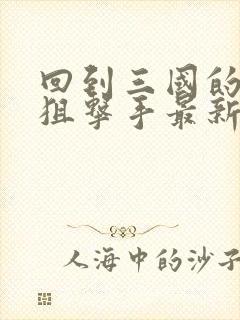 回到三國的
狙擊手最新
人海中的沙子